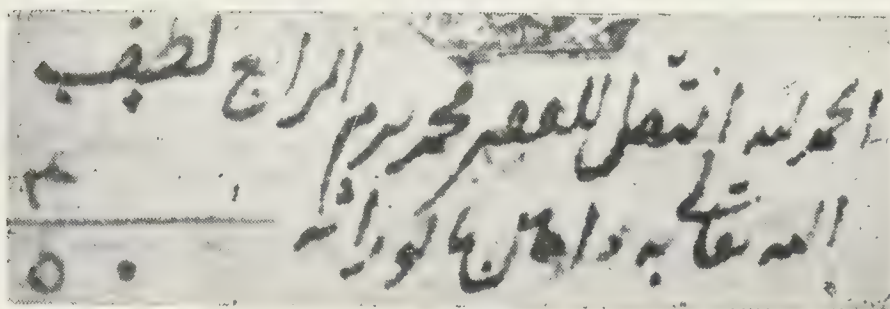 الحمد لله انتقل للفقير محمد بيرم الراج لطيف
الله تعالى به بالوراثه